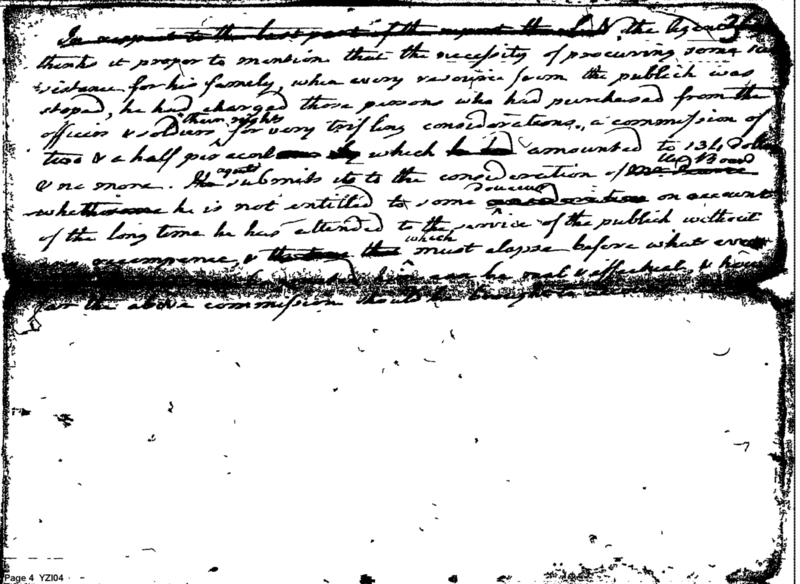 In respect to the last part of the report the the Agent
thinks it proper to mention that the necessity of procuring some
sistance for his family, when every resource from the publick was
stoped, he had charged those persons who had purchased from the
officers & soldiers their rights for very trifling considerations, a commission of
two & a half per cent which he had amounted to 134 dollars
& no more. The agent submits it to the consideration of the Board
whether he is not entitled to some douceur on account
of the long time he has attended to the service of the publick without
recompence, & which must elapse before what ever
can be real & effectual, &
far the above commission should be brought to
Page 4 YZI04